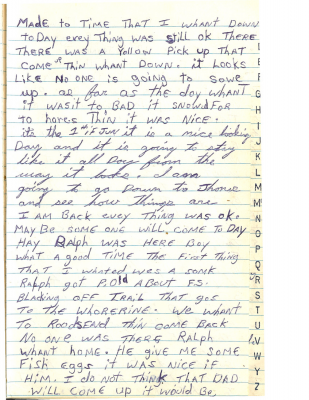 MADE to TIME THAT I WHANT DOWN
toDAY evey THing WAS still ok THere
THERE WAS A YOllOW Pick up THAT
COME THIN WHANT DOWN. it Looks
LIKE NO ONE is going to
up. as far as the day WHANT
it wasit to BAD it SNOWD FOR
to hores THIN it WAS NICE.
its the 1st of JUN it is a nice looking
Day and it is going to stay
like it all Day from the
way it looks. I am
going to go Down to
and see how things are.
I AM BACK evey THing WAS OK.
MAY Be SOME ONE WILL COME TO DAY
HAY RALPH WAS HERE BOY
WHAT A good TIME THE First THING
THAT I was a
Ralph got P.Old ABOUT F.S.
BlACKing OFF TRAIL THAT goS
TO THE. We WHANT
TO THIN COME BACK
NO ONE WAS THERE RALPH
WHANT HOME. HE GIVE ME SOME
Fish eggs it WAS NICE iF
HIM. I DO NOT THINK THAT DAD
WILL COME up it would Be.
G
H
I
J
K
L
M
N
O
P
Q
R
S
T
U
V
W
Y
Z